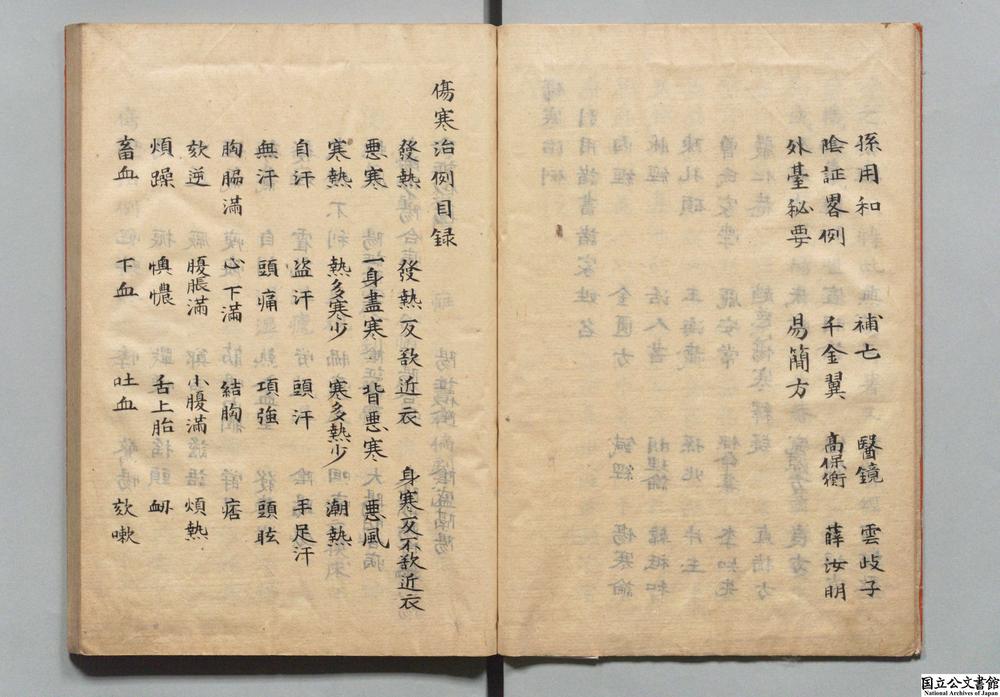 孫用和 補亡 醫鏡 雲歧子
陰証畧例 千金翼 髙保衡 薛汝明
外臺秘要 易簡方
傷寒治例目録
發熱 發熱反欲近衣 身寒反不欲近衣
悪寒 一身盡寒 背悪寒 悪風
寒熱 熱多寒少 寒多熱少 潮熱
自汗 盗汗 頭汗 手足汗
無汗 頭痛 項強 頭眩
胸脇滿 心下滿 結胸 痞
欬逆 腹脹滿 小腹滿 煩熱
煩躁 懊憹 舌上胎 衂
畜血 下血 吐血 欬嗽
国立公文書館
National Archives of Japan